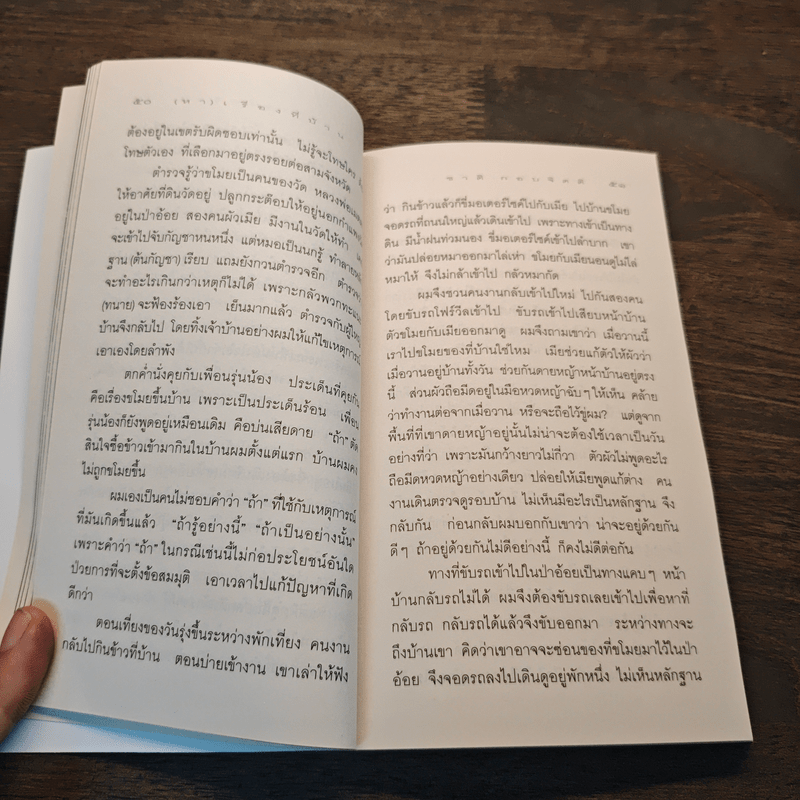 ๕๐ (หา) เรื่องที่บ้าน
ต้องอยู่ในเขตรับผิดชอบเท่านั้น ไม่รู้จะโทษใคร
โทษตัวเอง ที่เลือกมาอยู่ตรงรอยต่อสามจังหวัด
ตำรวจรู้ว่าขโมยเป็นคนของวัด
ให้อาศัยที่ดินวัดอยู่ ปลูกกระต๊อบให้อยู่นอกกำแพง
อยู่ในป่าอ้อย สองคนผัวเมีย มีงานในวัดให้ทำ
จะเข้าไปจับกัญชาหนหนึ่ง แต่หมอเป็นนกรู้ ทำลายหลัก
ฐาน (ต้นกัญชา) เรียบ แถมยังกวนตำรวจอีก ตำรวจ
จะทำอะไรเกินกว่าเหตุก็ไม่ได้ เพราะกลัวพวกทะแนะ
(ทนาย) จะฟ้องร้องเอา เย็นมากแล้ว ตำรวจกับผู้ใหญ่
บ้านจึงกลับไป โดยทิ้งเจ้าบ้านอย่างผมให้แก้ไขเหตุการณ์
เอาเองโดยลำพัง
ตกค่ำนั่งคุยกับเพื่อนรุ่นน้อง ประเด็นที่คุยกัน
คือเรื่องขโมยขึ้นบ้าน เพราะเป็นประเด็นร้อน เพื่อน
รุ่นน้องก็ยังพูดอยู่เหมือนเดิม คือบ่นเสียดาย "ถ้า" ตัด
สินใจซื้อข้าวเข้ามากินในบ้านผมตั้งแต่แรก บ้านผมคง
ไม่ถูกขโมยขึ้น
ผมเองเป็นคนไม่ชอบคำว่า "ถ้า" ที่ใช้กับเหตุการณ์
ที่มันเกิดขึ้นแล้ว "ถ้ารู้อย่างนี้" "ถ้าเป็นอย่างนั้น"
เพราะคำว่า "ถ้า" ในกรณีเช่นนี้ไม่ก่อประโยชน์อันใด
ป่วยการที่จะตั้งข้อสมมุติ เอาเวลาไปแก้ปัญหาที่เกิด
ดีกว่า
ตอนเที่ยงของวันรุ่งขึ้นระหว่างพักเที่ยง คนงาน
กลับไปกินข้าวที่บ้าน ตอนบ่ายเข้างาน เขาเล่าให้ฟัง
ชาติ กอบจิตติ ๕๑
ว่า กินข้าวแล้วก็ขี่มอเตอร์ไซค์ไปกับเมีย ไปบ้านขโมย
จอดรถที่ถนนใหญ่แล้วเดินเข้าไป เพราะทางเข้าเป็นทาง
ดิน มีน้ำฝนท่วมนอง ขี่มอเตอร์ไซค์เข้าไปลำบาก เขา
ว่ามันปล่อยหมาออกมาไล่เห่า ขโมยกับเมียนอนดูไม่ไล่
หมาให้ จึงไม่กล้าเข้าไป กลัวหมากัด
ผมจึงชวนคนงานกลับเข้าไปใหม่ ไปกันสองคน
โดยขับรถโฟร์วีลเข้าไป ขับรถเข้าไปเสียบหน้าบ้าน
ตัวขโมยกับเมียออกมาดู ผมจึงถามเขาว่า เมื่อวานนี้
เราไปขโมยของที่บ้านใช่ไหม เมียช่วยแก้ตัวให้ผัวว่า
เมื่อวานอยู่บ้านทั้งวัน ช่วยกันดายหญ้าหน้าบ้านอยู่ตรง
นี้ ส่วนผัวถือมีดอยู่ในมือหวดหญ้าฉับๆ ให้เห็น คล้าย
ว่าทำงานต่อจากเมื่อวาน หรือจะถือไว้ขู่ผม? แต่ดูจาก
พื้นที่ที่เขาดายหญ้าอยู่นั้นไม่น่าจะต้องใช้เวลาเป็นวัน
อย่างที่ว่า เพราะมันกว้างยาวไม่กี่วา ตัวผัวไม่พูดอะไร
ถือมีดหวดหญ้าอย่างเดียว ปล่อยให้เมียพูดแก้ต่าง คน
งานเดินตรวจดูรอบบ้าน ไม่เห็นมีอะไรเป็นหลักฐาน จึง
กลับกัน ก่อนกลับผมบอกกับเขาว่า น่าจะอยู่ด้วยกัน
ดีๆ ถ้าอยู่ด้วยกันไม่ดีอย่างนี้ ก็คงไม่ดีต่อกัน
ทางที่ขับรถเข้าไปในป่าอ้อยเป็นทางแคบๆ หน้า
บ้านกลับรถไม่ได้ ผมจึงต้องขับรถเลยเข้าไปเพื่อหาที่
กลับรถ กลับรถได้แล้วจึงขับออกมา ระหว่างทางจะ
ถึงบ้านเขา คิดว่าเขาอาจจะซ่อนของที่ขโมยมาไว้ในป่า
อ้อย จึงจอดรถลงไปเดินดูอยู่พักหนึ่ง ไม่เห็นหลักฐาน